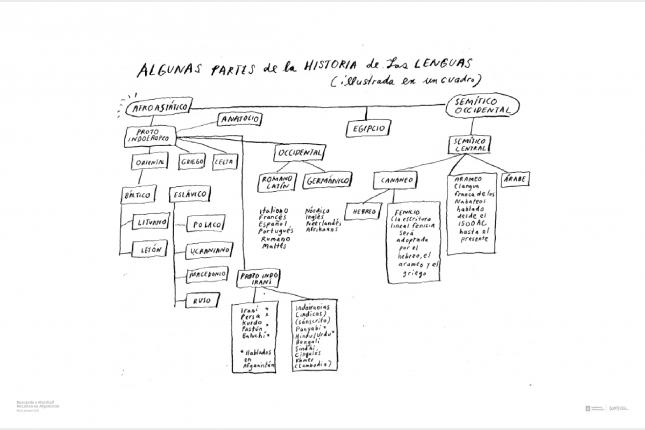 ALGUNAS PARTES de la HISTORIA de las LENGUAS
(illustrada en un cuadro)
AFROASIÁTICO
SEMÍTICO
OCCIDENTAL
ANATOLIO
EGIPCIO
PROTO
INDOEROPEO
SEMÍTICO
CENTRAL
ORIENTAL
GRIEGO
CELTA
OCCIDENTAL
ROMANO
LATÍN
GERMÁNICO
CANANEO
ARAMEO
(langua
franca de los
Nabateos
hablado
desde el
1500 AC
hasta el
presente
ÁRABE
BÁLTICO
ESLÁVICO
LITUANO
LETÓN
POLACO
UCRANIANO
MACEDONIO
RUSO
Italiano
Francés
Español
Portugués
Rumano
Maltés
Nórdico
Inglés
Neerlandés
Afrikanos
HEBREO
FENICIO
(la escritura
lineal fenicia
será
adoptada
por el
hebreo, el
arameo y el
griego
PROTO INDO
IRANÍ
Iraní *
Persa *
Kurdo
Pastún *
Baluchi *
* Hablados
en
Afganistán
Indoarias
(indicas)
(sánscrito)
Panyabi *
Hindu/Urdu *
Bengali
Sindhi,
Cingalés
Khmer
(Cambodia)